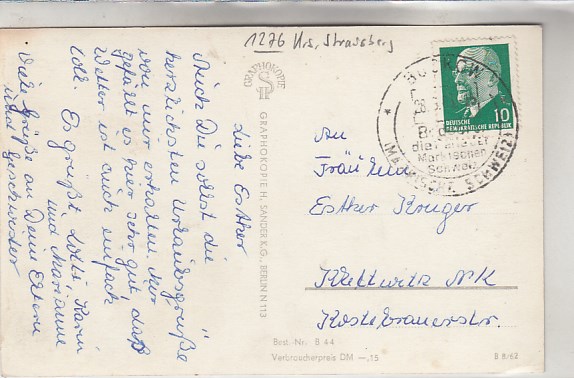 1276 Krs. Strausberg
Liebe Esther
Auch Du sollst die
herzlichsten Urlaubsgrüße
von mir erhalten. Mir
gefällt es hier sehr gut, das
Wetter ist auch einfach
toll. Es grüßt Lotti, Karin
und Marianne
Viele Grüße an Deine Eltern
und Geschwister
GRAPHOKOPIE
GRAPHOKOPIE H. SANDER K.G., BERLIN N 113
BUCKOW
die Perle der
Märkischen
Schweiz
(MÄRKISCHE SCHWEIZ)
DEUTSCHE
DEMOKRATISCHE REPUBLIK
10
An
Fräulein
Esther Krüger
Klettwitz N/K
Kostebrauerstr.
Best. Nr. B 44
Verbraucherpreis DM —,15
B 8/62